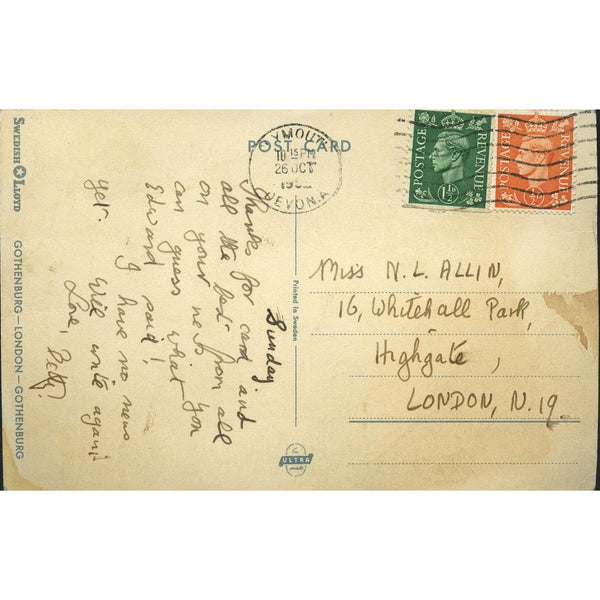 SWEDISH LLOYD GOTHENBURG—LONDON—GOTHENBURG
POST CARD
PLYMOUTH
10 15 PM
26 OCT
DEVON.A
POSTAGE REVENUE 1½D
POSTAGE REVENUE ½D
Sunday.
Thanks for card and
all the best from all
on your news
can guess what you
Edward said!
I have no news
yet. Will write again
Love, Betty!
Printed in Sweden
The ULTRA
Miss N. L. ALLIN,
16, Whitehall Park,
Highgate,
LONDON, N.19.